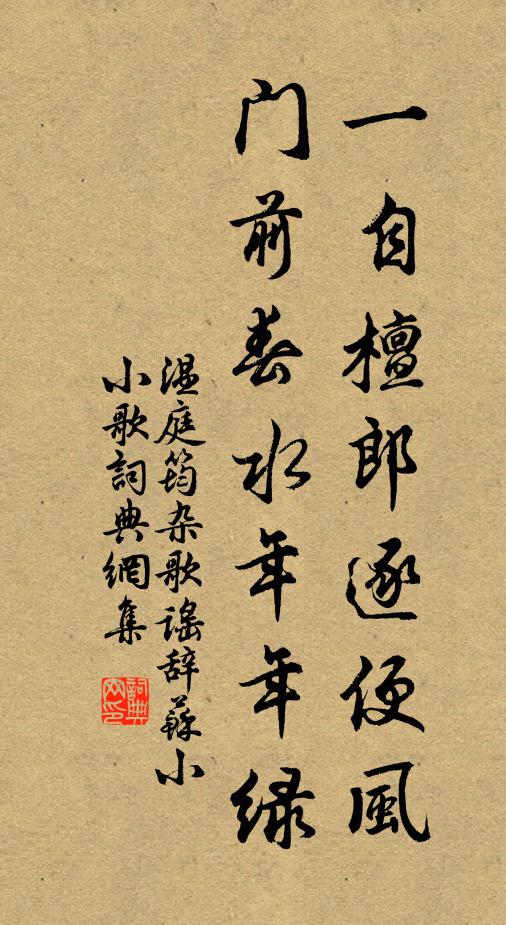 一自檀郎逐便風
门前春水年年绿
温庭筠杂歌谣辞蘇小
小歌詞典網集
詞典
网印